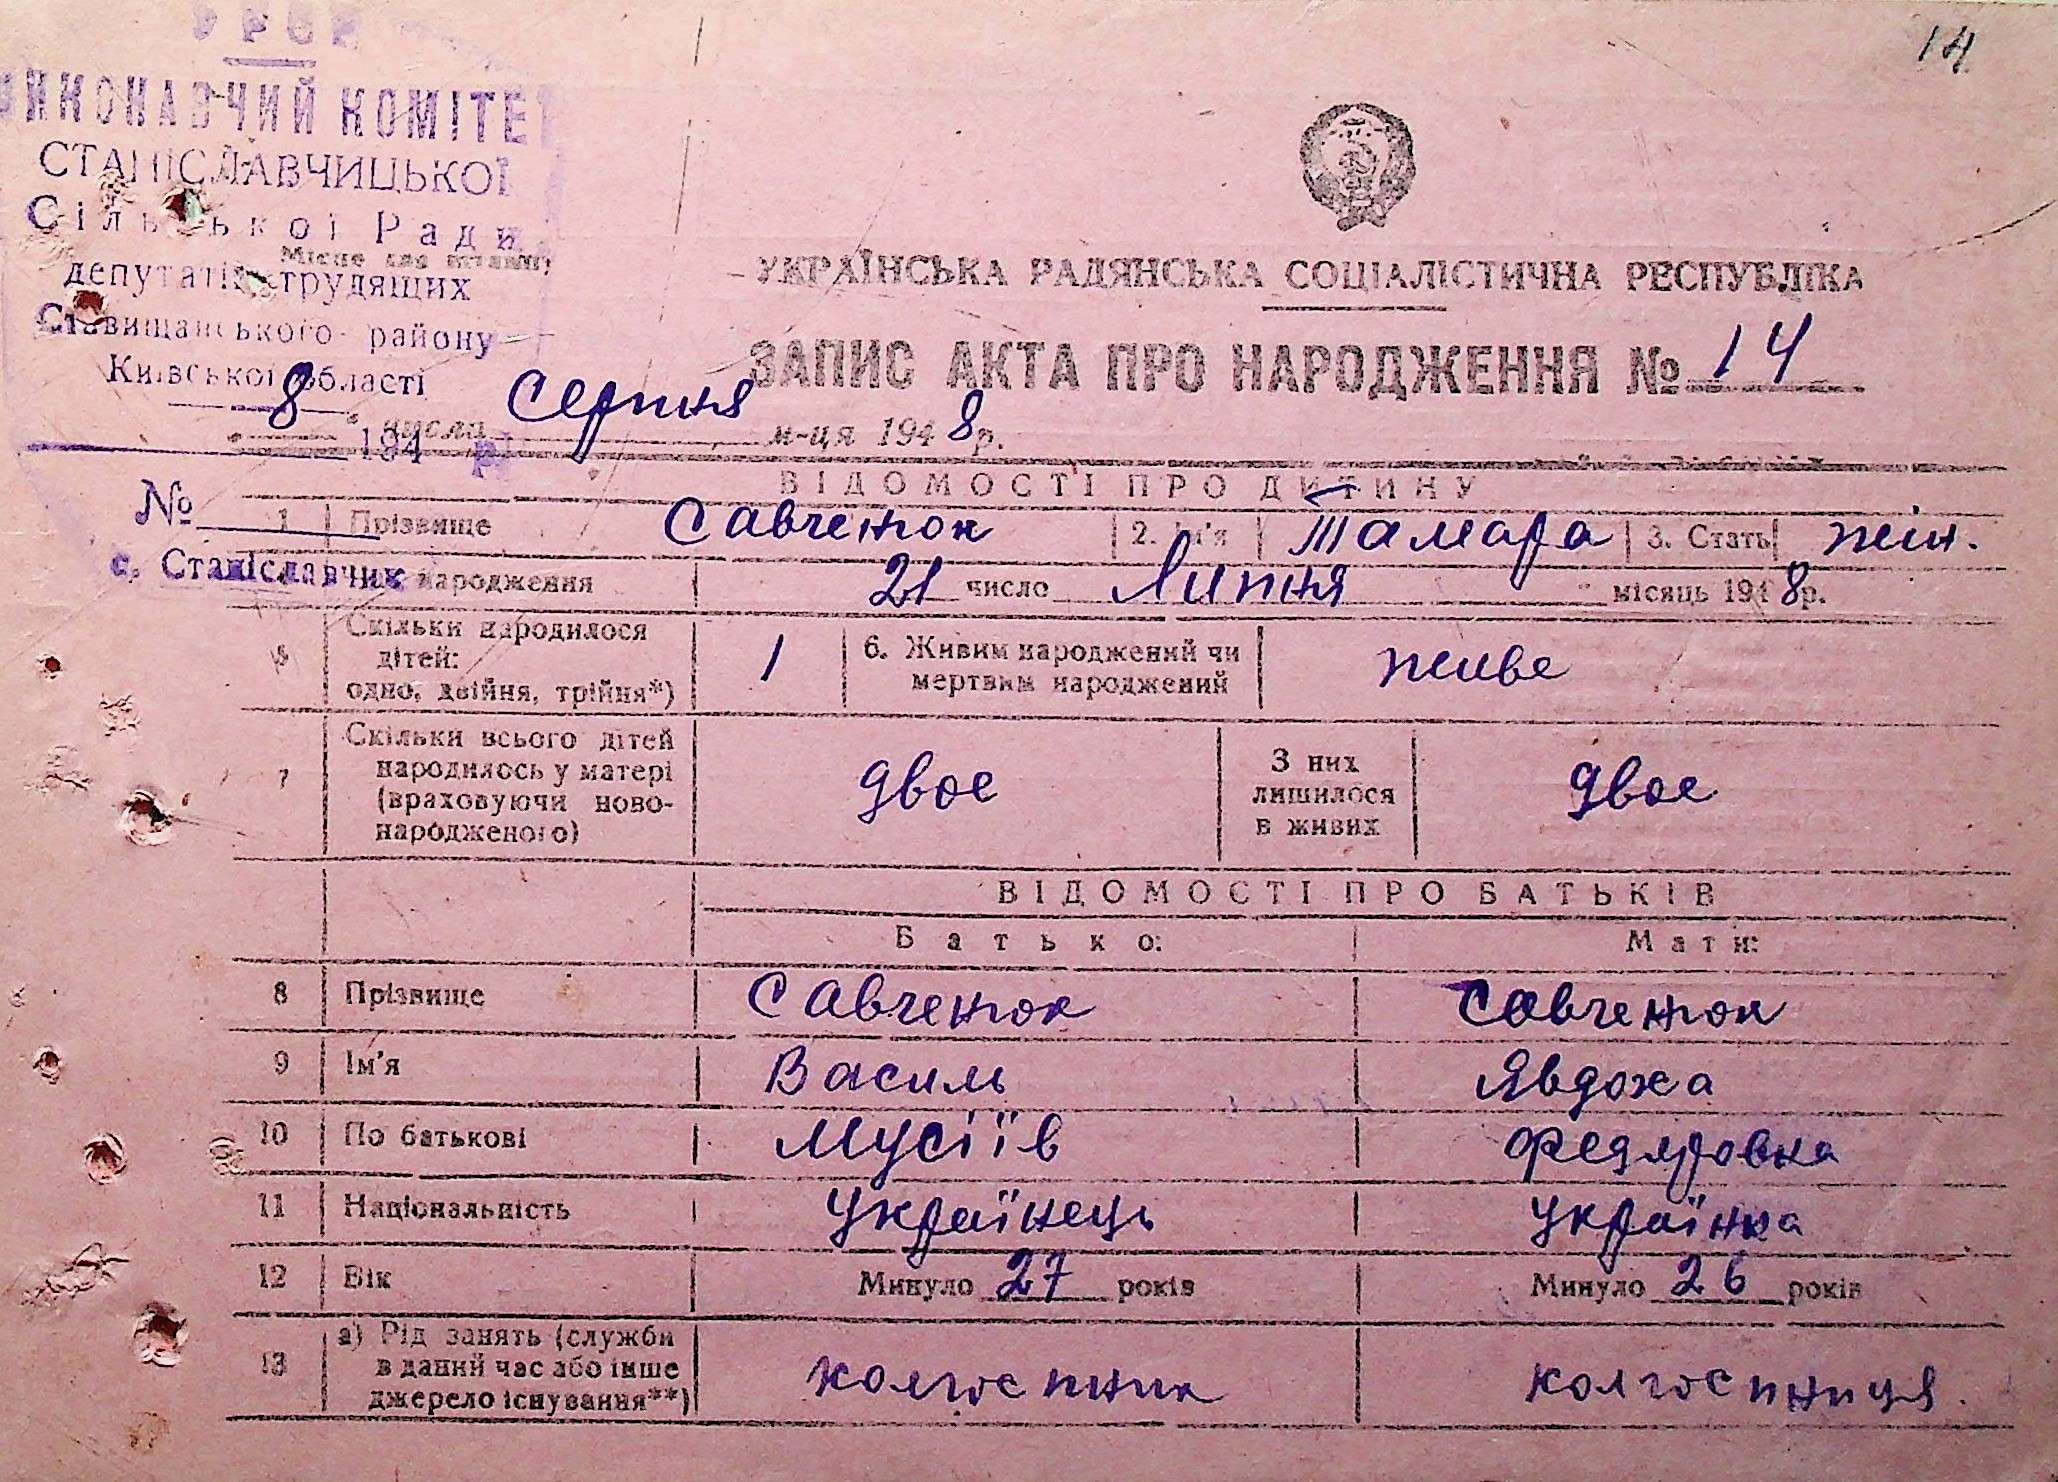 14
УРСР
ВИКОНАВЧИЙ КОМІТЕТ
СТАНІСЛАВЧИЦЬКОЇ
Сільської Ради
Місце для штампу
депутатів трудящих
Ставищанського району
Київської області
194 р
№
с. Станіславчик
УКРАЇНСЬКА РАДЯНСЬКА СОЦІАЛІСТИЧНА РЕСПУБЛІКА
ЗАПИС АКТА ПРО НАРОДЖЕННЯ № 14
8 числа серпня м-ця 1948 р.
ВІДОМОСТІ ПРО ДИТИНУ
1 Прізвище Савченюк 2. Ім'я Тамара 3. Стать жін.
народження 21 число Липня місяць 1948 р.
5 Скільки народилося дітей: одно, двійня, трійня*) 1 6. Живим народжений чи мертвим народжений живе
7 Скільки всього дітей народилось у матері (враховуючи новонародженого) двое З них лишилося в живих двое
ВІДОМОСТІ ПРО БАТЬКІВ
Батько: Мати:
8 Прізвище Савченюк Савченюк
9 Ім'я Василь Явдоха
10 По батькові Мусіїв Федяровна
11 Національність Українець Українка
12 Вік Минуло 27 років Минуло 26 років
13 а) Рід занять (служби в даний час або інше джерело існування**) колгоспник колгоспниця.